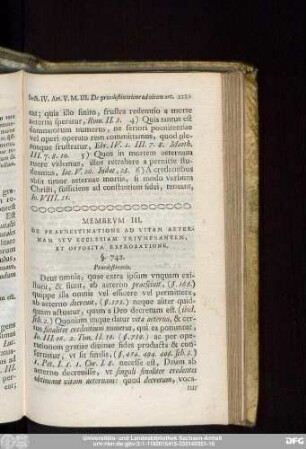 Sect. IV. Art. V. M. III. De praedestinatione ad vitam aet.
eat; quia illo finito, frustra redemtio a morte
aeterna speratur, Rom. II. 5. 4) Quia tantus est
damnatorum numerus, ne seriori poenitentiae
vel operi operato rem committamus, quod plerumque
frustraneum, Ebr. IV. 1. III. 7. 8. Matth.
III. 7. 8. 10. 5) Quos in mortem aeternam
ruere videmus, illos retrahere a pernicie studeamus,
6) A credentibus
abit timor aeternae mortis, si modo verbum
Christi, sufficiens ad constantiam fidei, teneant,
Io. VIII. 51.
MEMBRVM III.
DE PRAEDESTINATIONE AD VITAM AETERNAM
SEV ECCLESIAM TRIVMPHANTEM,
ET OPPOSITA REPROBATIONE.
§. 742.
Praedestinatio.
Deus omnia, quae extra ipsum vnquam existunt,
& fiunt, ab aeterno praesciuit,
quippe illa omnia vel efficere vel permittere,
ab aeterno decreuit, neque aliter quidquam
actuatur, quam a Deo decretum est.
Quoniam itaque datur vita aeterna, & certus
fataliter credentium numerus, qui ea potiuntur,
ac per operationem
gratiae diuinae fides producta & conseruatur,
vt sit finalis,
1. Pet. I. 5. 1. Cor. I. 8. necesse est, Deum ab
aeterno decreuisse, vt singuli finaliter credentes
obtineant vitam aeternam: quod decretum, voca-
tur
Universitäts- und Landesbibliothek Sachsen-Anhalt